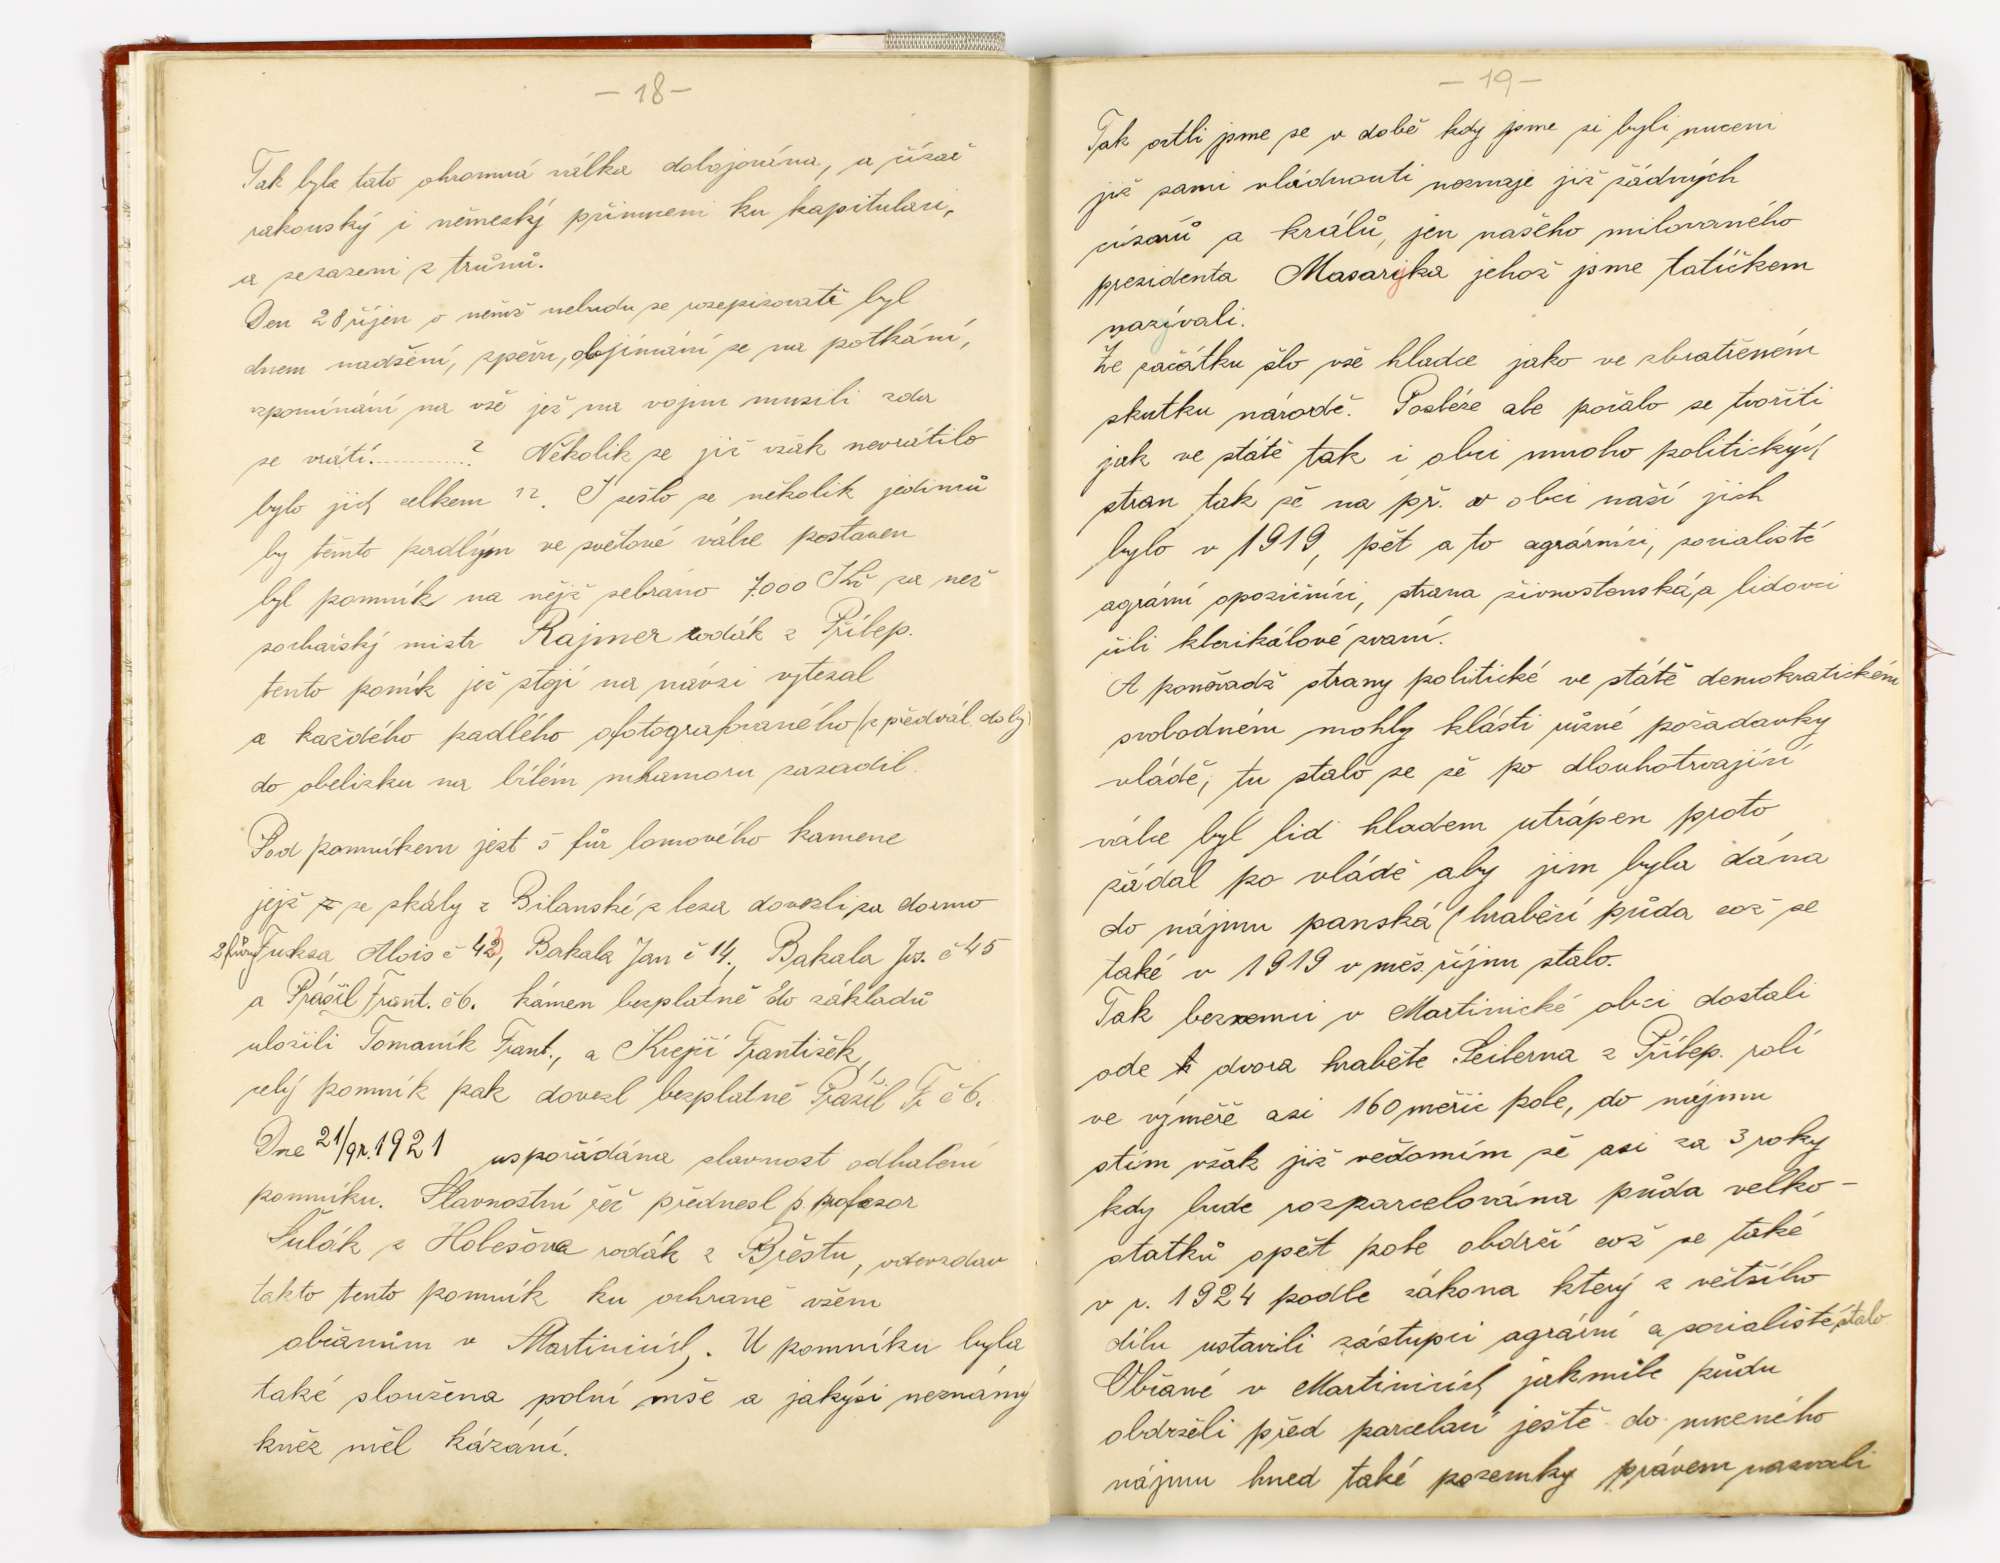 - 18 -
Tak byla tato ohromná válka dobojována, a císař
rakouský i německý přinuceni ku kapitulaci,
a sesazeni z trůnů.
Den 28 říjen o němž nebudu se rozepisovati byl
dnem nadšení, zpěvu, objímání se na potkání,
zpomínání na vše jež na vojnu musili zda
se vrátí............? Několik se jič však nevrátilo
bylo jich celkem 12. I sešlo se několik jedinců
by těmto padlým ve světové válce postaven
byl pomník na nějž sebráno 7.000 Kč za než
sochařský mistr Rajmer rodák z Přílep.
tento pomík jež stojí na návsi vytesal
a každého padlého ofotografovaného (z předvál. doby)
do obelisku na bílém mramoru zasadil.
Pod pomníkem jest 5 fůr lomového kamene
jejž ze skály z Bilanské z lesa dovezli za darmo
2 fůry Fuksa Alois č 42, Bakala Jan č 14., Bakala Jos. č 45
a Prášil Frant. č 6. kámen bezplatně do základů
uložili Tomaník Frant., a Krejčí František,
celý pomník pak dovezl bezplatně Prášil Fr č 6.
Dne 21/9r.1921 uspořádána slavnost odhalení
pomníku. Slavnostní řeč přednesl p. profesor
Šulák z Holešova rodák z Břestu, odevzdav
takto tento pomník ku ochraně všem
občanům v Martinicích. U pomníku byla
také sloužena polní mše a jakýsi neznámý
kněz měl kázání.
- 19 -
Tak octli jsme se v době kdy jsme si byli nuceni
již sami vládnouti neznaje již žádných
císařů a králů, jen našeho milovaného
presidenta Masaryka jehož jsme tatíčkem
nazývali.
Ze začátku šlo vše hladce jako ve zbratřeném
skutku národě. Posléze ale počalo se tvořiti
jak ve státě tak i obci mnoho politických
stran tak že na př. v obci naší jich
bylo v 1919, pět a to agrárníci, socialisté
agrární oposičníci, strana živnostenská, a lidovci
čili klerikálové zvaní.
A ponevadž strany politické ve státě demokratickém
svobodném mohly klásti různé požadavky
vládě, tu stalo se že po dlouhotrvající
válce byl lid hladem utrápen proto
žádal po vládě aby jim byla dána
do nájmu panská (hraběcí půda což se
také v 1919 v měs. říjnu stalo.
Tak bezzemci v Martinické obci dostali
ode dvora hraběte Seilerna z Přílep. rolí
ve výměře asi 160 měřic pole, do nájmu
stím však již vědomím že asi za 3 roky
kdy bude rozparcelována půda velko-
statků opět pole obdrží což se také
v r. 1924 podle zákona který z většího
dílu ustavili zástupci agrární a socialisté stalo
Občané v Martinicích jakmile půdu
obdrželi před parcelací ještě do nuceného
nájmu hned také pozemky právem nazvali